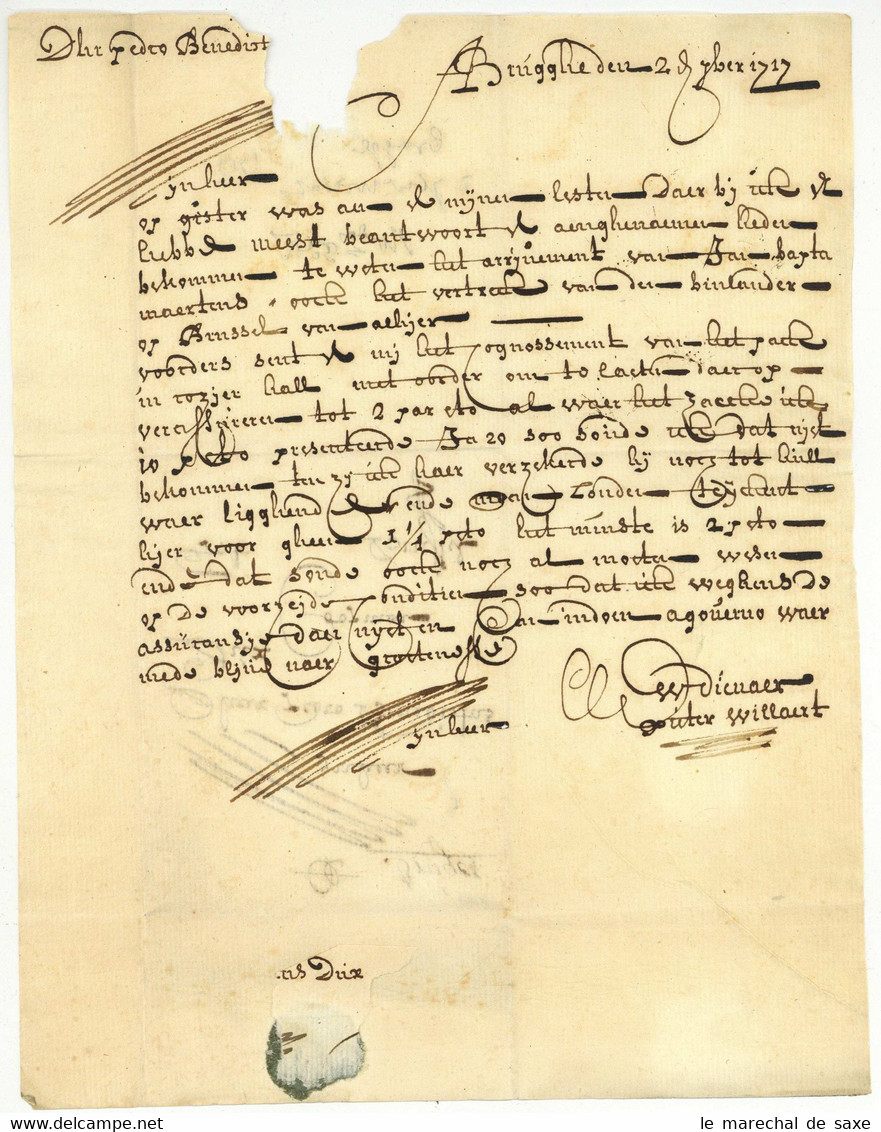 Dhr pedro Benedict
Brugghe den 2 9ber 1717
Mynheer
op gister was aen U mynen lesten daer by ick U
hebbe meest beantwoort U aenghenaemen heden
bekommen te weten het arryvement van Jan bapta
maertens oock het vertreck van den hinlander
op Brussel van alhier
voorders sent U my het cognossement van het pack
in rozier hall met oorder om te laeten daer op
verassureren tot 2 par cto al waer het zaecke ick
10 p cto presenteerde Ja 20 soo soude ick dat nyet
bekommen ten zy ick haer verzekerde hy nocg tot hull
waer ligghende ende men Londen teyckent
hier voor gheen 1 1/4 p cto het minste is 2 p cto
ende dat soude oock nocg al moeten wesen
op de voorzeyde conditien soo dat ick weghens de
assuransye daer nyet en can in doen a governo waer
mede blyve naer groetenesse
UE dw dienaer
pieter Willaert
Mynheer
us Dux
le marechal de saxe